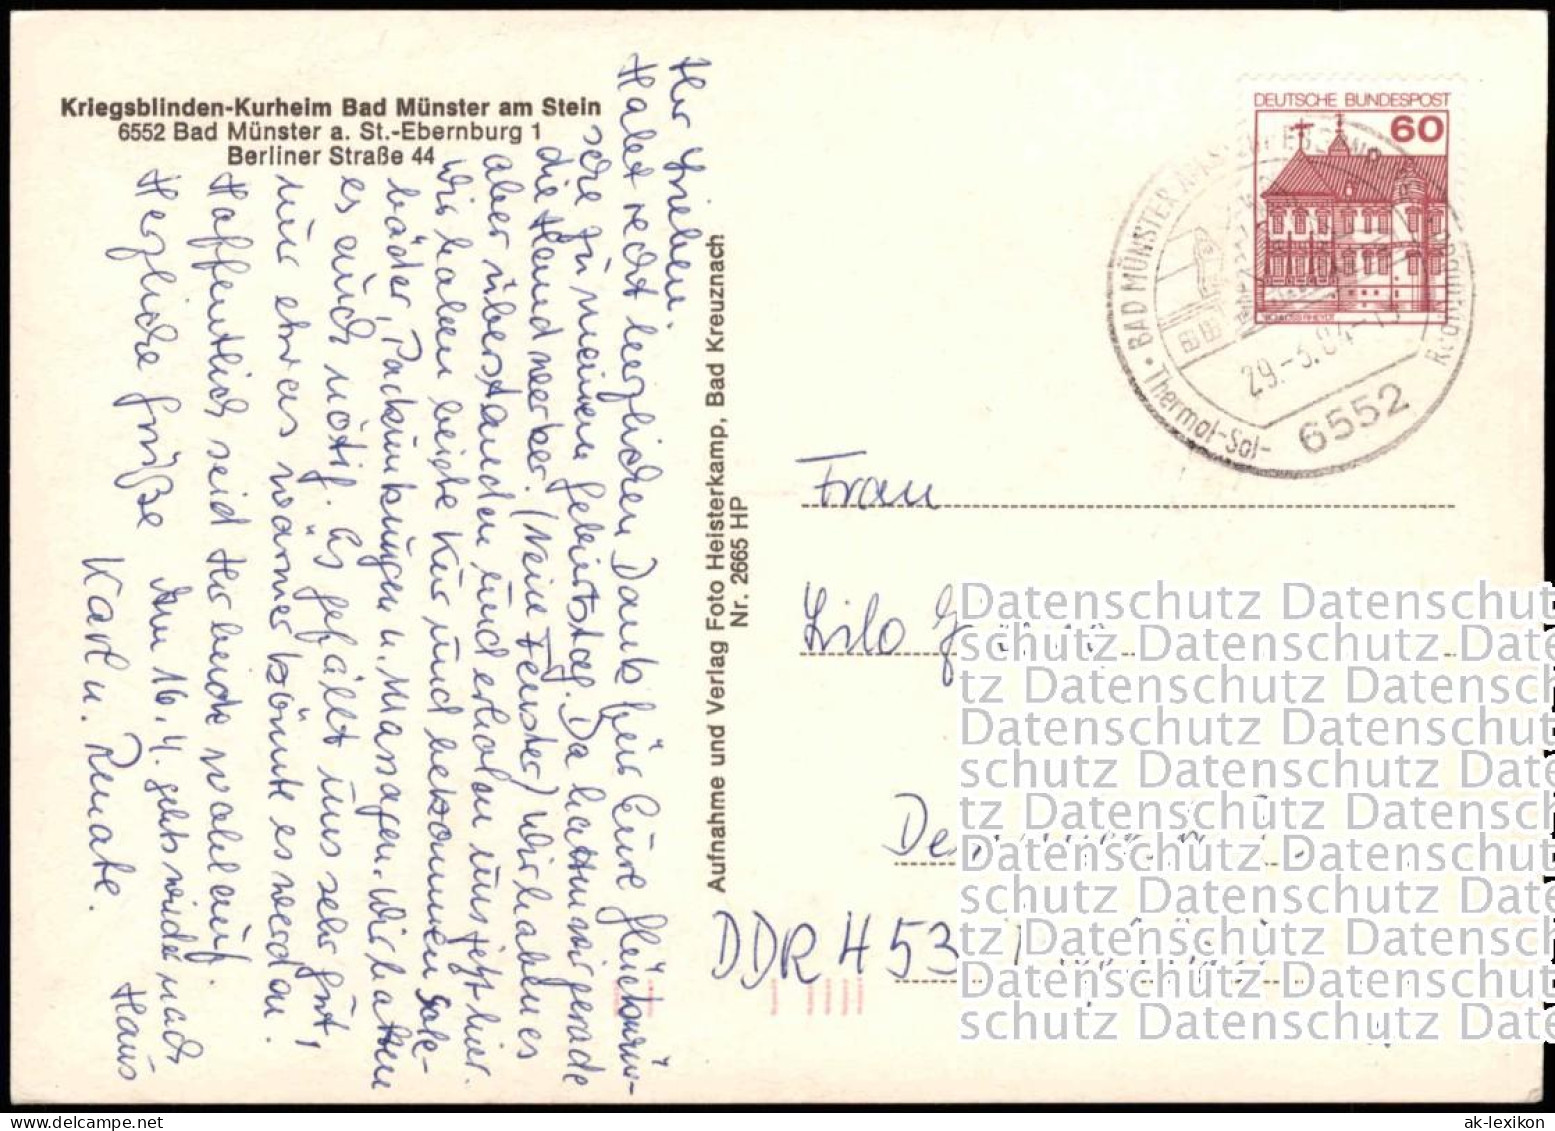 Kriegsblinden-Kurheim Bad Münster am Stein
6552 Bad Münster a. St.-Ebernburg 1
Berliner Straße 44
Ihr Lieben.
Habt recht herzlichen Dank für Eure Glückwün-
sche zu meinem Geburtstag. Da hatten wir gerade
die Handwerker. (Neue Fenster) Wir haben es
aber überstanden und erholen uns jetzt hier.
Wir haben beide Kur und bekommen Sole-
bäder, Packungen u. Massagen. Wir hatten
es auch nötig. Es gefällt uns sehr gut,
nur etwas wärmer könnte es werden.
Hoffentlich seid Ihr beide wohlauf.
Am 16.4. gehts wieder nach
Haus
Herzliche Grüße
Karl u. Renate.
Aufnahme und Verlag Foto Heisterkamp, Bad Kreuznach
Nr. 2665 HP
DEUTSCHE BUNDESPOST
60
SCHLOSS RHEYDT
BAD MÜNSTER
29.-3.84-
Thermal-Sol-
6552
Frau
Lilo
DDR 453
Datenschutz Datenschut
schutz Datenschutz
tz Datenschutz Datenschutz
Datenschutz Datenschut
schutz Datenschutz
tz Datenschutz Datenschutz
Datenschutz Datenschut
schutz Datenschutz
tz Datenschutz Datenschutz
Datenschutz Datenschut
schutz Datenschutz
ak-lexikon